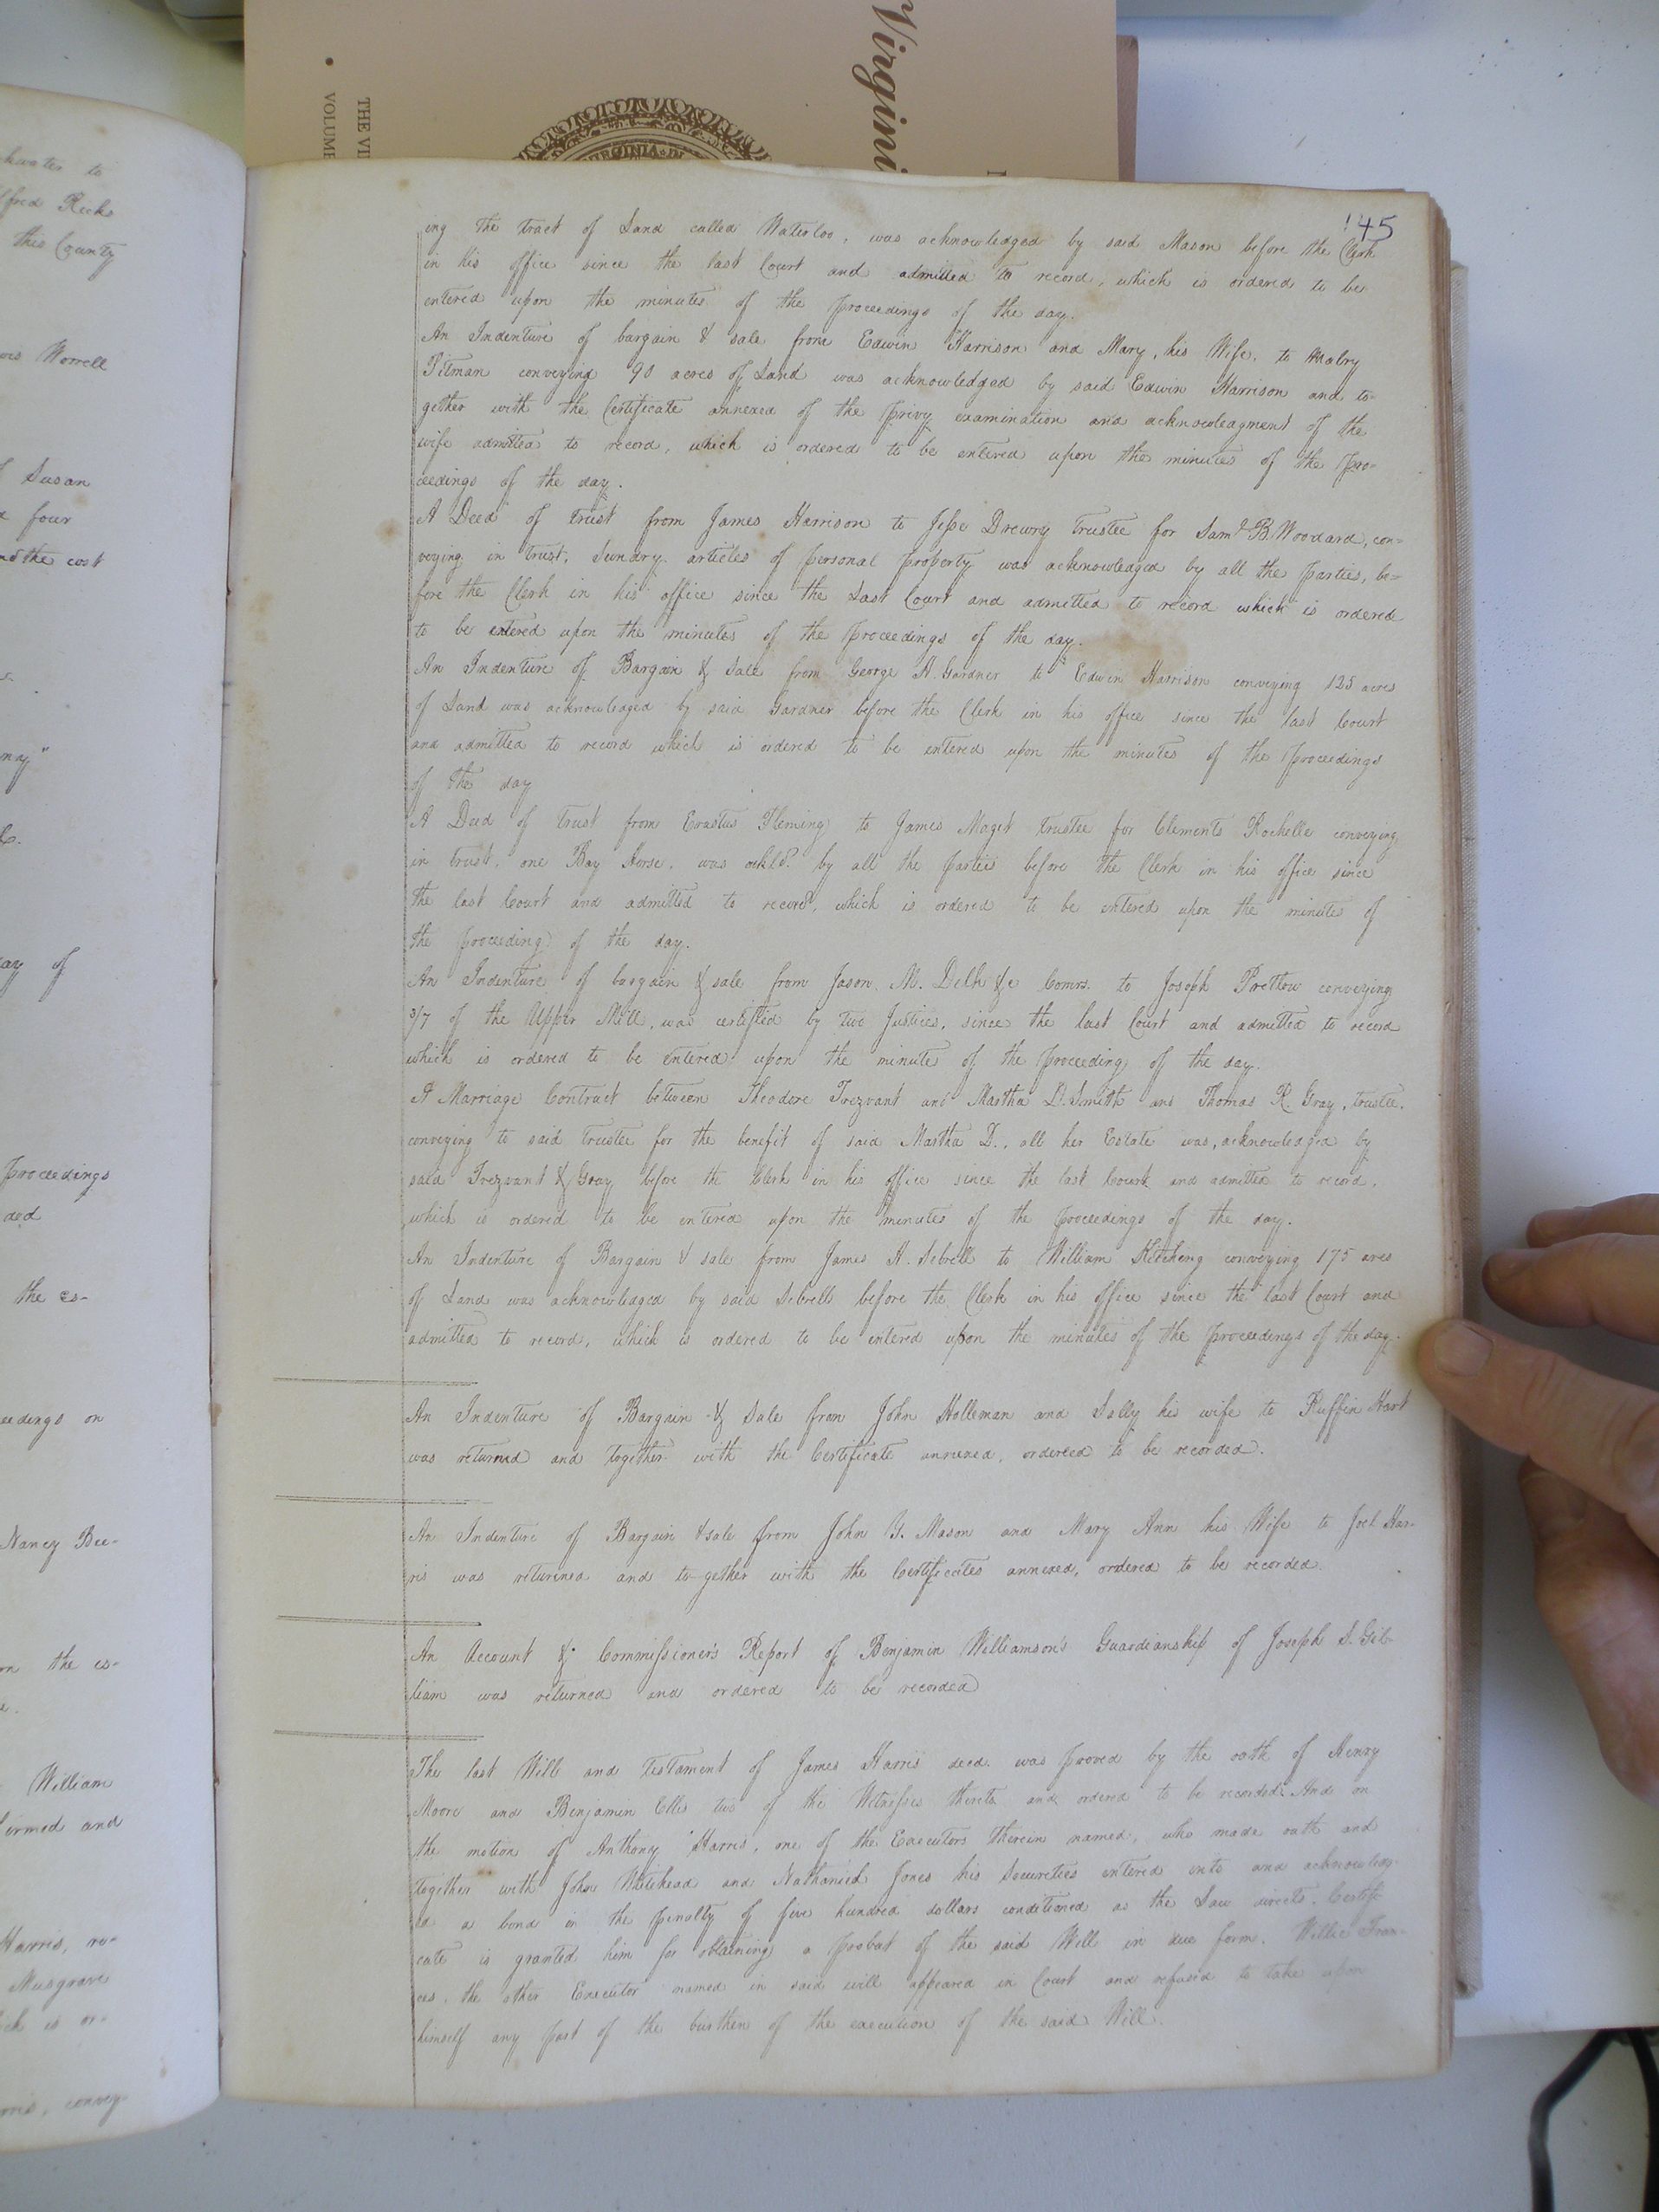 Virgini
THE VI
VOLUME
VIRGINIA
145
ing the tract of Land called Waterloo, was acknowledged by said Mason before the Clerk
in his office since the last Court and admitted to record, which is ordered to be
entered upon the minutes of the proceedings of the day.
An Indenture of bargain & sale from Edwin Harrison and Mary, his Wife, to Malry
Pitman conveying 90 acres of Land was acknowledged by said Edwin Harrison and to-
gether with the Certificate annexed of the privy examination and acknowledgment of the
wife admitted to record, which is ordered to be entered upon the minutes of the pro-
ceedings of the day.
A Deed of trust from James Harrison to Jesse Drewry trustee for Saml. B. Woodard, con-
veying in trust, Sundry articles of personal property was acknowledged by all the parties, be-
fore the Clerk in his office since the Last Court and admitted to record which is ordered
to be entered upon the minutes of the proceedings of the day.
An Indenture of Bargain & Sale from George H. Gardner to Edwin Harrison conveying 125 acres
of Land was acknowledged by said Gardner before the Clerk in his office since the last Court
and admitted to record which is ordered to be entered upon the minutes of the proceedings
of the day
A Deed of trust from Erastus Fleming to James Maget trustee for Clements Rochelle conveying
in trust, one Bay Horse, was ackld. by all the parties before the Clerk in his office since
the last Court and admitted to record, which is ordered to be entered upon the minutes of
the proceeding of the day.
An Indenture of bargain & sale from Jason M. Delk &c Comrs. to Joseph Prettow conveying
3/7 of the Upper Mill, was certified by two Justices, since the last Court and admitted to record
which is ordered to be entered upon the minutes of the proceeding of the day.
A Marriage Contract between Theodore Trezvant and Martha D. Smith and Thomas R. Gray, trustee,
conveying to said trustee for the benefit of said Martha D., all her Estate was, acknowledged by
said Trezvant & Gray before the Clerk in his office since the last Court and admitted to record,
which is ordered to be entered upon the minutes of the proceedings of the day.
An Indenture of Bargain & sale from James A. Sebrell to William Kitching conveying 175 acres
of Land was acknowledged by said Sebrell before the Clerk in his office since the last Court and
admitted to record, which is ordered to be entered upon the minutes of the proceedings of the day.
An Indenture of Bargain & Sale from John Holleman and Sally his wife to Ruffin Hart
was returned and together with the Certificate annexed, ordered to be recorded.
An Indenture of Bargain & sale from John Y. Mason and Mary Ann his Wife to Joel Har-
ris was returned and to-gether with the Certificates annexed, ordered to be recorded.
An Account & Commissioner's Report of Benjamin Williamson's Guardianship of Joseph S. Gil-
liam was returned and ordered to be recorded
The last Will and testament of James Harris decd. was proved by the oath of Henry
Moore and Benjamin Ellis two of the Witnesses thereto and ordered to be recorded. And on
the motion of Anthony Harris, one of the Executors therein named, who made oath and
together with John Whitehead and Nathaniel Jones his Securities entered into and acknowledg-
ed a bond in the penalty of five hundred dollars conditioned as the Law directs. Certifi-
cate is granted him for obtaining a probat of the said Will in due form. Willie Fran-
ces, the other Executor named in said will appeared in Court and refused to take upon
himself any part of the burthen of the execution of the said Will.